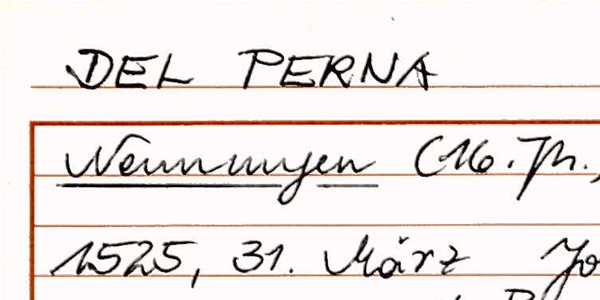 DEL PERNA
Nennungen (16. Jh.,
1525, 31. März Jo